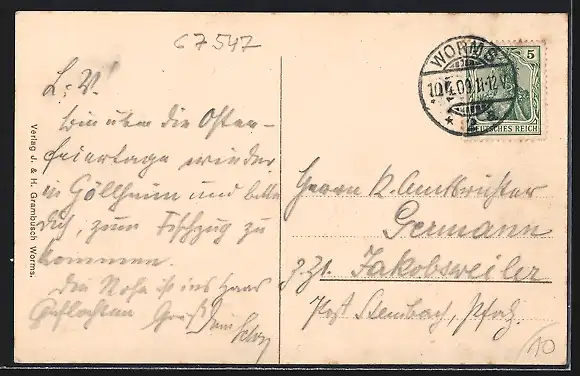 67547
L. V!
bin über die Oster-
feiertage wieder
in Göllheim und bitte
dich, zum Fischzug zu
kommen.
Die Rose ist ins Haar
geflochten Gruß Dein
Verlag J. & H. Grambusch Worms.
WORMS
10.4.09. 11-12 V.
5
DEUTSCHES REICH
Herrn K. Amtsrichter
Germann
z. Zt. Jakobsweiler
Post Stembach, Pfalz.
10